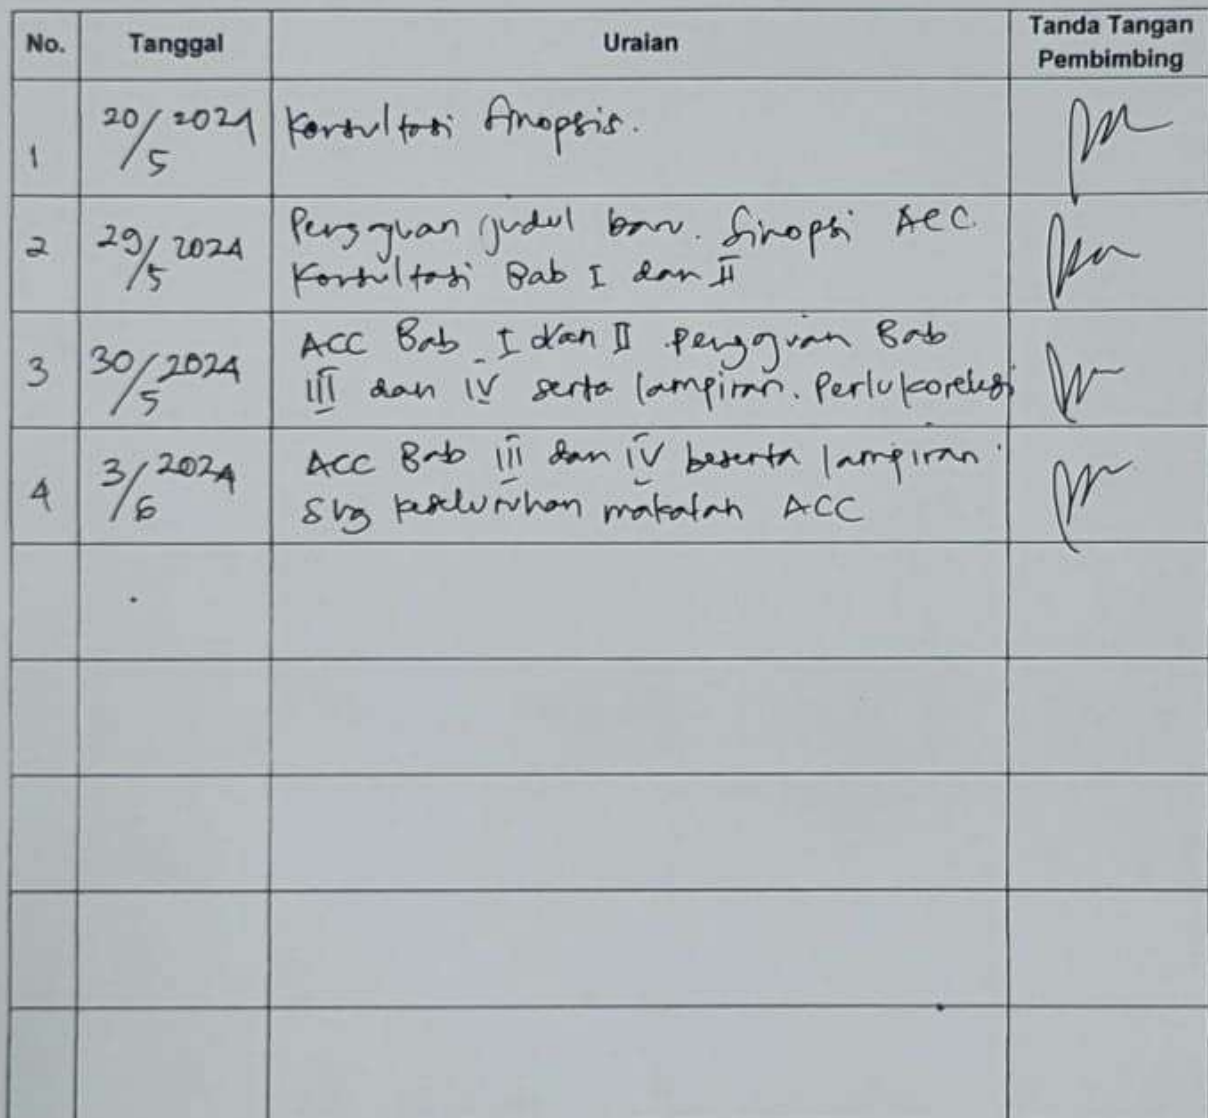 No. Tanggal Uraian Tanda Tangan
Pembimbing
1 20/5 2024 Konsultasi Sinopsis.
2 29/5 2024 Pengajuan judul baru. Sinopsi ACC
Konsultasi Bab I dan II
3 30/5 2024 ACC Bab I dan II pengajuan Bab
III dan IV serta lampiran. Perlu koreksi
4 3/6 2024 ACC Bab III dan IV beserta lampiran
Sbg keseluruhan makalah ACC